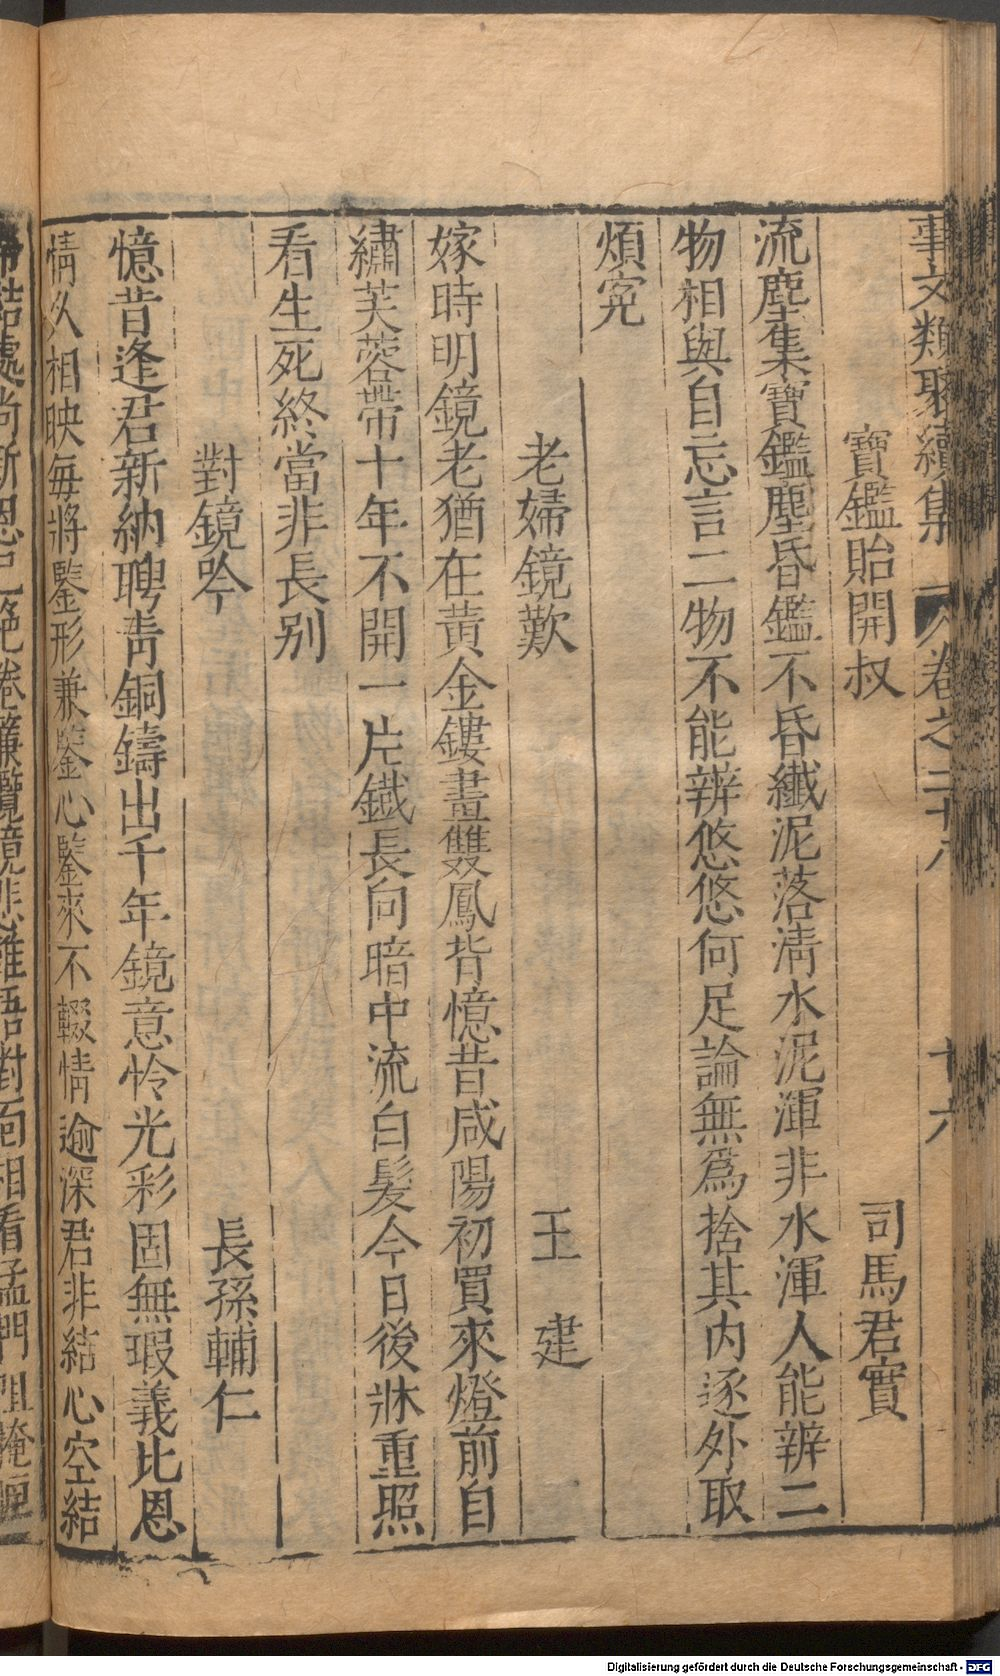 事文類聚續集 卷之二十八 十六
寶鑑貽開叔 司馬君實
流塵集寶鑑塵昏鑑不昏纖泥落淸水泥渾非水渾人能辨二
物相與自忘言二物不能辨悠悠何足論無爲捨其内逐外取
煩寃
老婦鏡歎 王建
嫁時明鏡老猶在黃金鏤畫雙鳳背憶昔咸陽初買來燈前自
繡芙蓉帶十年不開一片鐵長向暗中流白髮今日後牀重照
看生死終當非長别
對鏡吟 長孫輔仁
憶昔逢君新納聘靑銅鑄出千年鏡意怜光彩固無瑕義比恩
情久相映每將鑒形兼鑒心鑒來不輟情逾深君非結心空結
帶結處尚新恩已絶卷簾攬鏡悲難語對面相看孟門阻掩匣
Digitalisierung gefördert durch die Deutsche Forschungsgemeinschaft - DFG